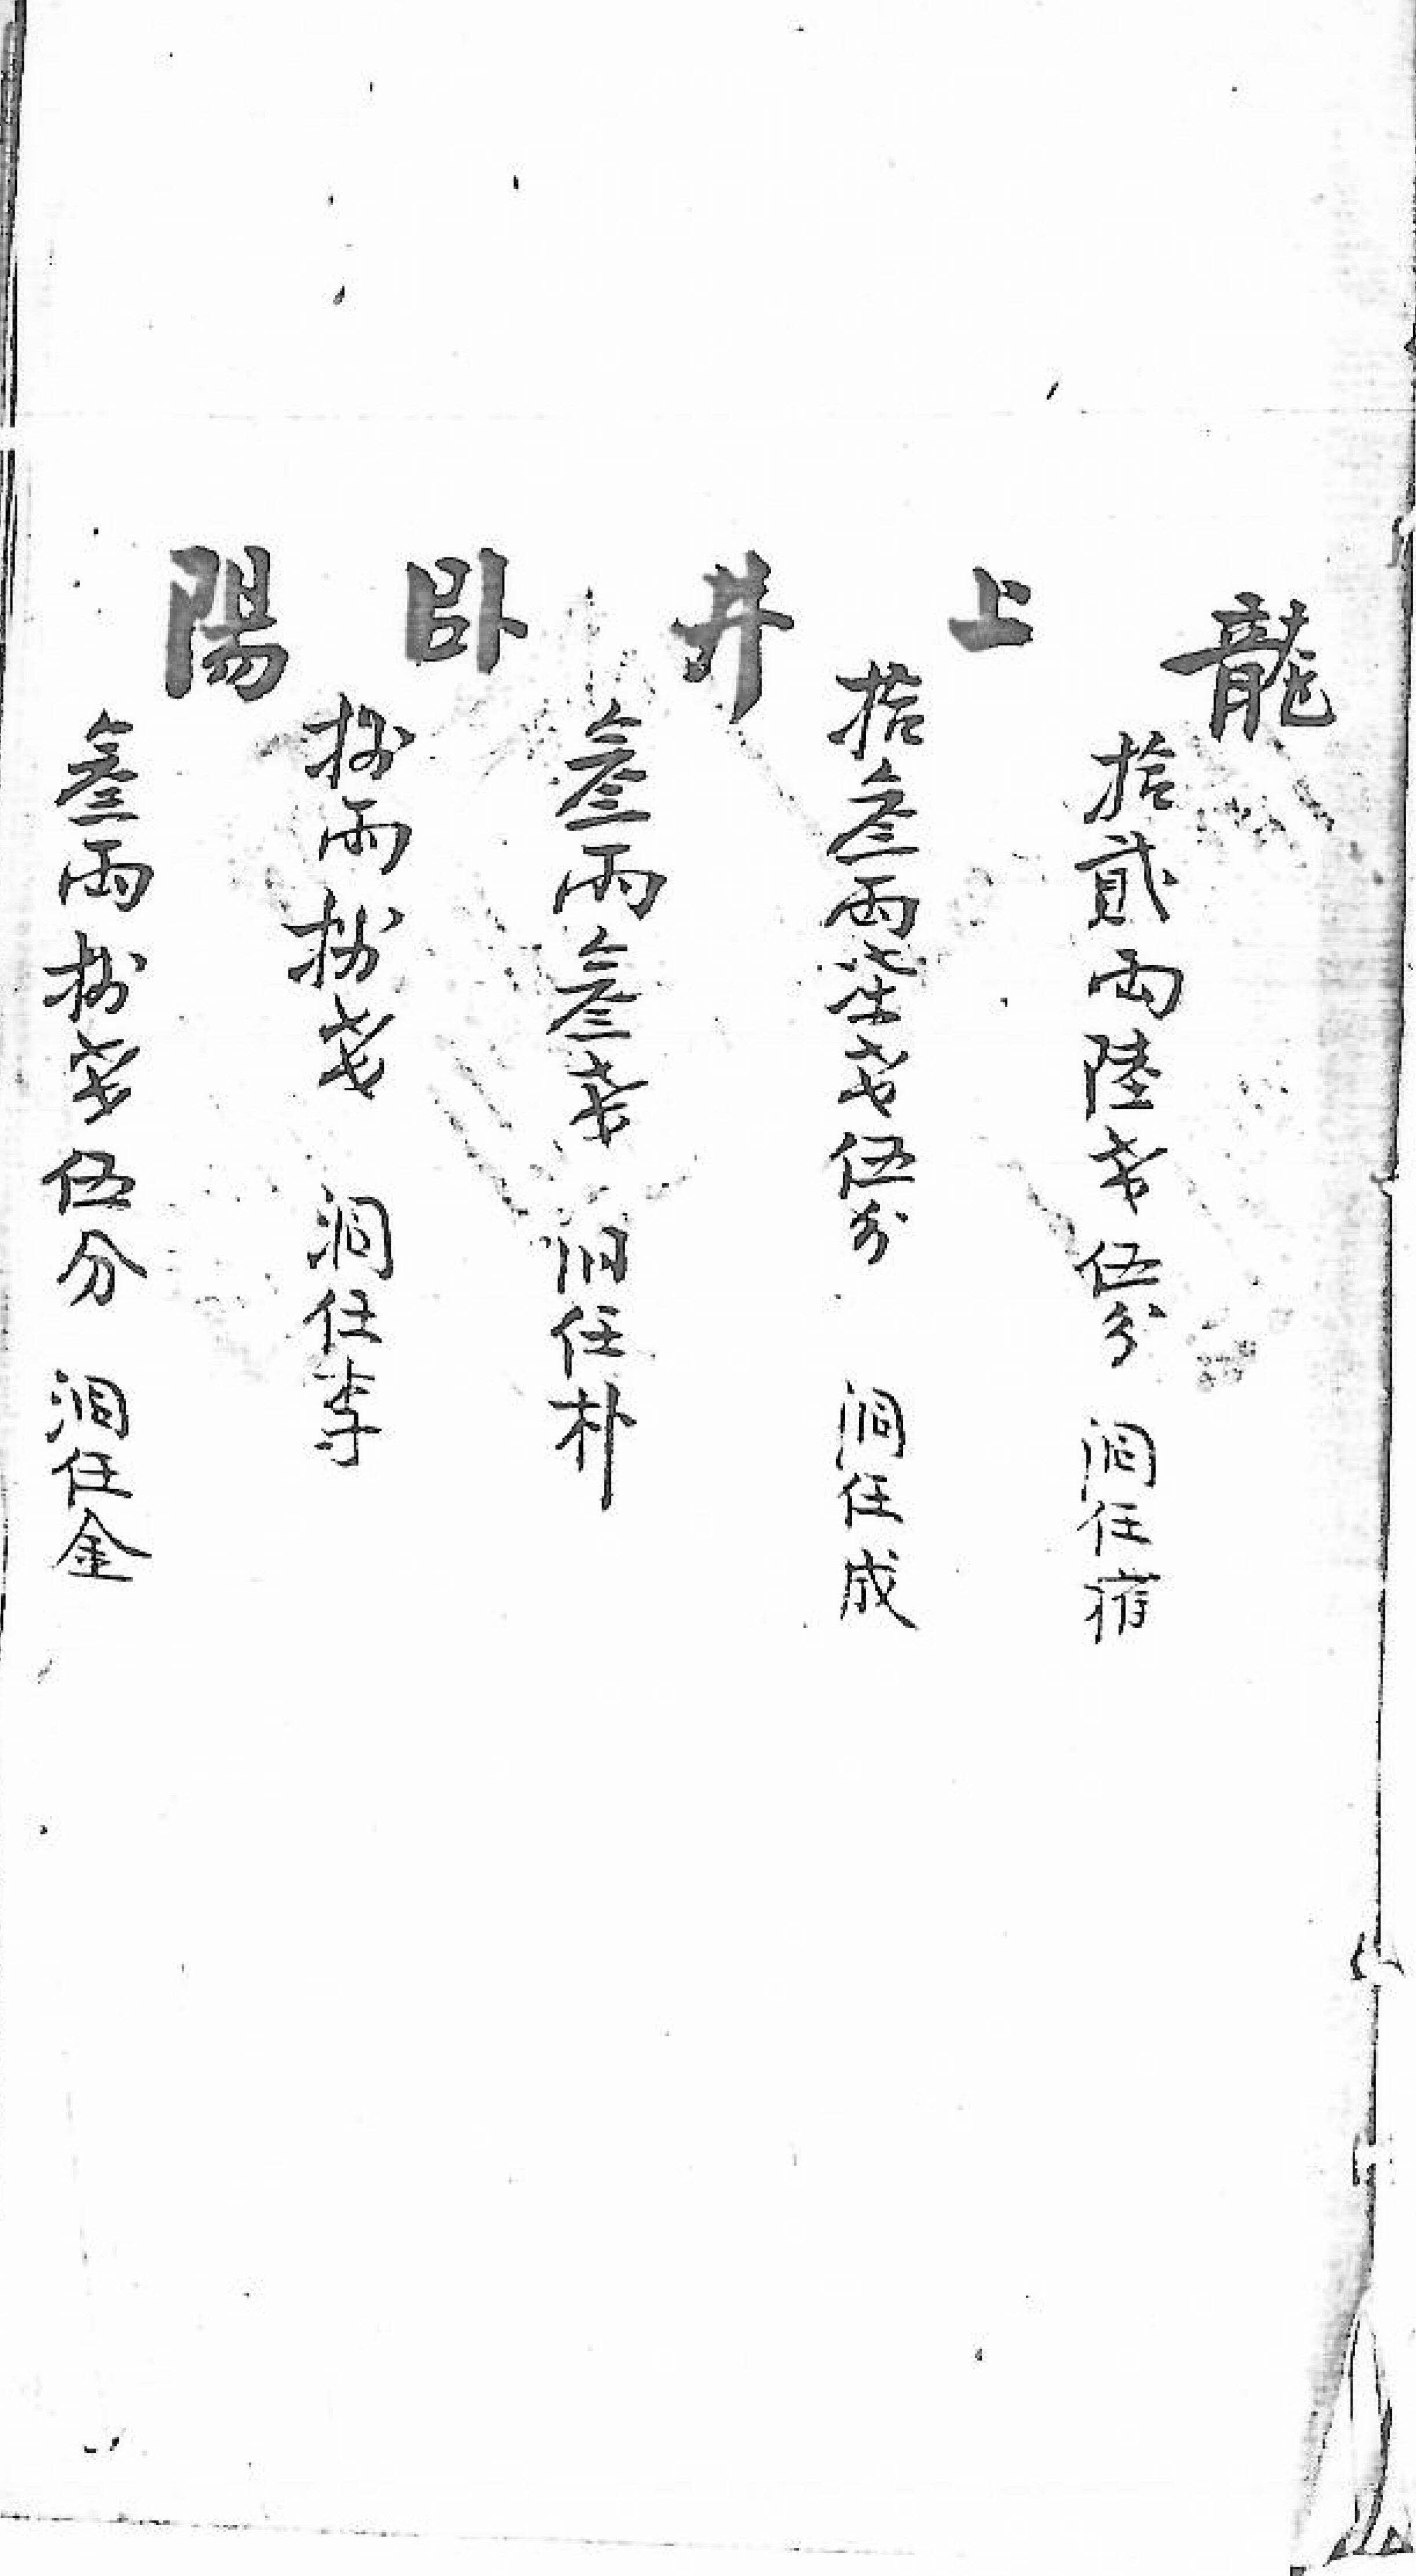 龍
拾貳兩陸戔伍分 洞任
上
拾叁兩柒戔伍分 洞任成
井
叁兩叁戔 旧任朴
臥
捌兩捌戔 洞任李
陽
叁兩捌戔伍分 洞任金